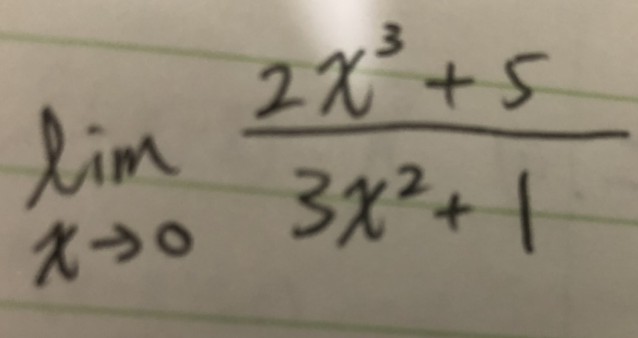 lim x→0 (2x³ + 5)/(3x² + 1)